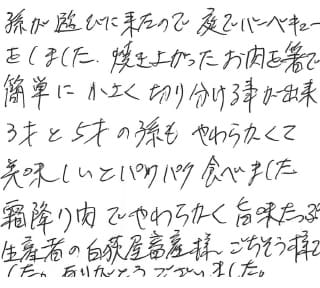 孫が遊びに来たので庭でバーベキュー
をしました。焼き上がったお肉を箸で
簡単に小さく切り分ける事が出来
3才と5才の孫も やわらかくて
美味しいとパクパク食べました
霜降り肉でやわらかく旨味たっぷ
生産者の白荻屋畜産様 ごちそう様で
した。ありがとうございました。